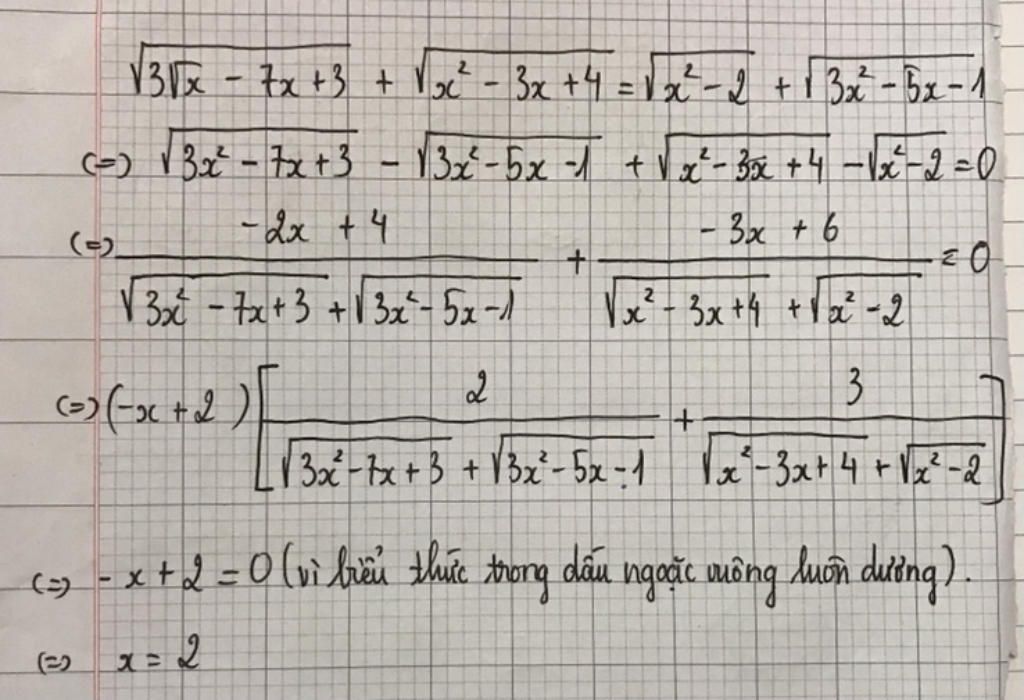 √(3√x - 7x + 3) + √(x² - 3x + 4) = √(x² - 2) + √(3x² - 5x - 1)
(=) √(3x² - 7x + 3) - √(3x² - 5x - 1) + √(x² - 3x + 4) - √(x² - 2) = 0
(=) (-2x + 4)/(√(3x² - 7x + 3) + √(3x² - 5x - 1)) + (-3x + 6)/(√(x² - 3x + 4) + √(x² - 2)) = 0
(=) (-x + 2) [2/(√(3x² - 7x + 3) + √(3x² - 5x - 1)) + 3/(√(x² - 3x + 4) + √(x² - 2))]
(=) - x + 2 = 0 (vì biểu thức trong dấu ngoặc vuông luôn dương).
(=) x = 2